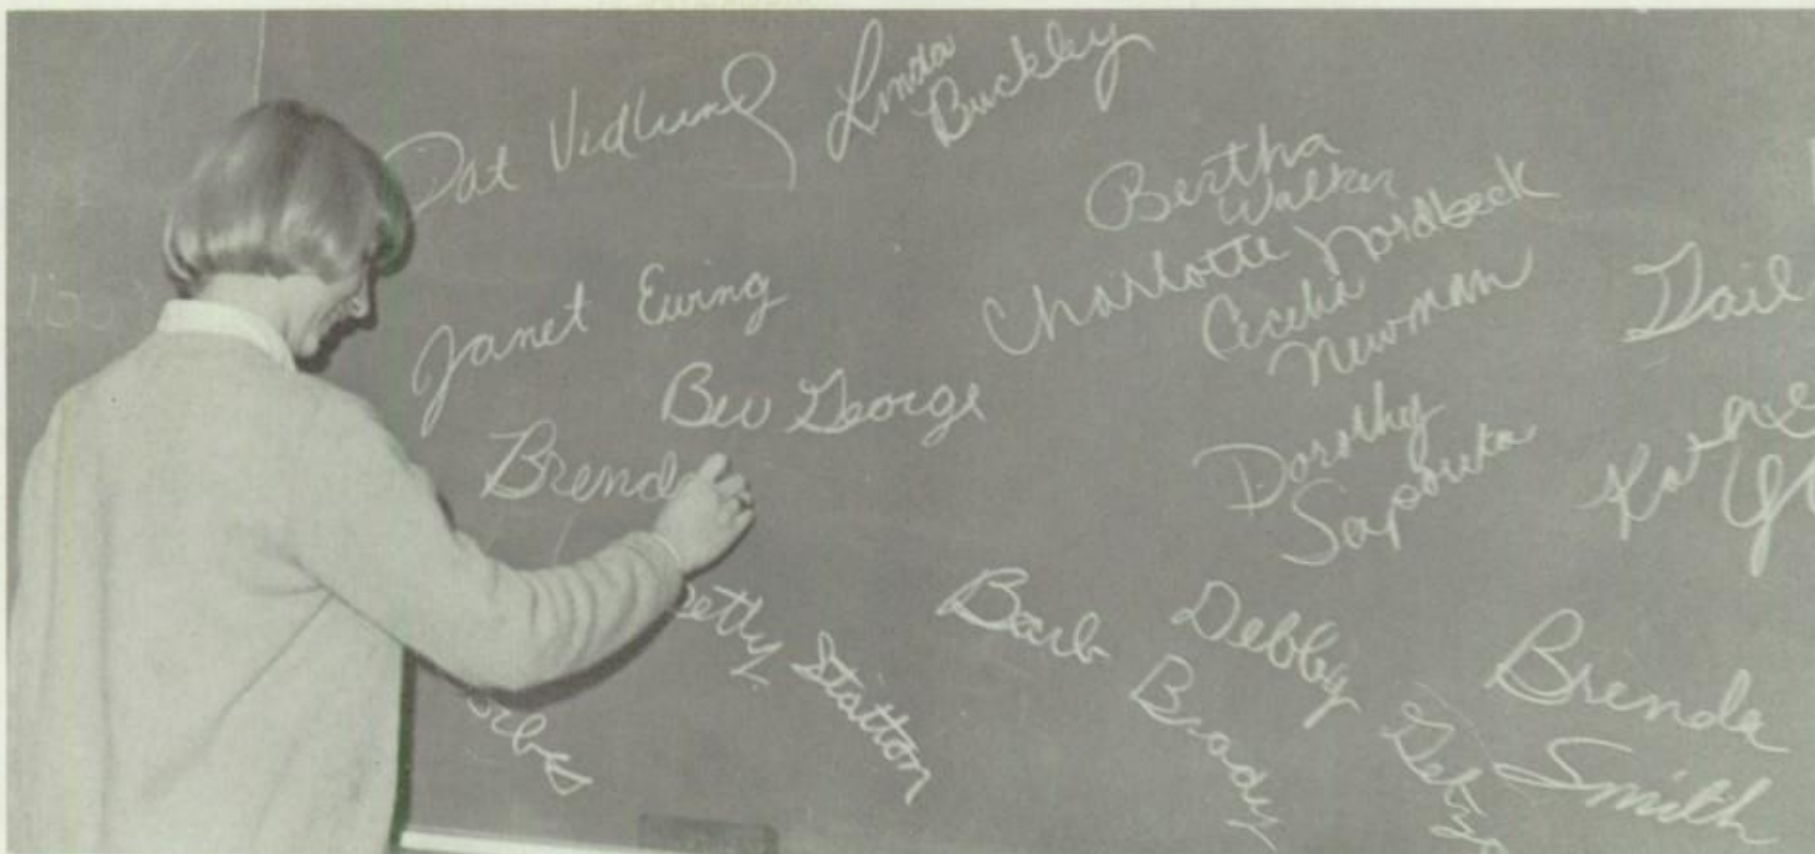 Pat Vedlund
Linda
Buckley
Bertha
Walker
Charlotte Nordbeck
Cecelia
Newman
Janet Ewing
Bev George
Brend
Dorothy
Betty Statton
Barb Brady
Debby
Brenda
Smith